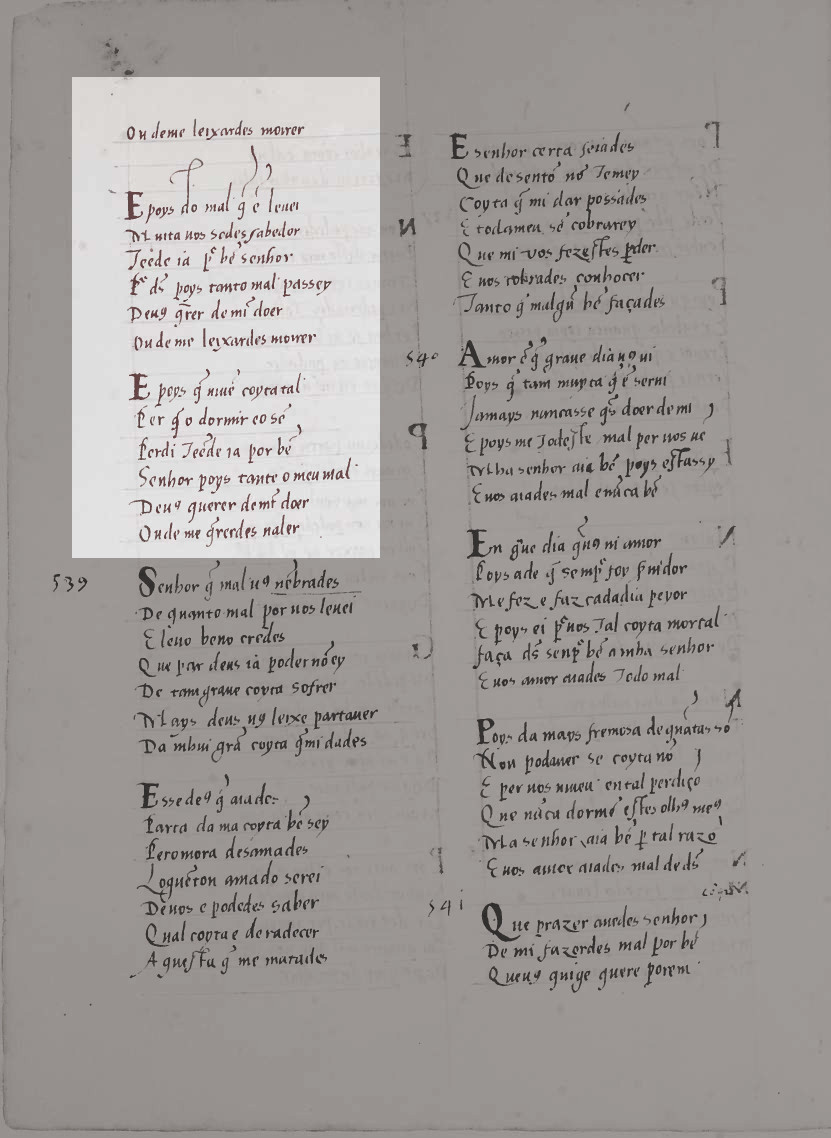 Ou deme leixardes morrer
E poys do mal q̄ ē leuei
Muita uos sodes sabedor
Teēde ia pʳ bē senhor
Pʳ ds̄ poys tanto mal passey
Deuꝯ q̄rer de mī doer
Ou de me leixardes morrer
E poys q̄ uiuē coyta tal
Per q̄ o dormir e o sē
Perdi Teēde ia por bē
Senhor poys tanto o meu mal
Deuꝯ querer demī doer
Ou de me q̄rerdes ualer
539
Senhor q̄ mal uꝯ nēbrades
De quanto mal por uos leuei
E leuo beno credes
Que par deus ia poder nō ey
De tam graue coyta sofrer
Mays deus uꝯ leixe partauer
Da mhui grā coyta q̄mi dades
Esse deꝯ q̄ aiades
Parta da ma coyta bē sey
Peromora desamades
Loguerton amado serei
Deuos e podedes saber
Qual coyta e de radecer
Aquesta q̄ me matades
E senhor certa seiades
Que desento nō Temey
Coyta q̄ mi dar possades
E todameu sē cobrarey
Que mi uos fezestes pder
E uos tobrades conhocer
Tanto q̄ malgū bē façades
540
Amor ē q̄ graue dia uꝯ ui
Poys q̄ tam muyta q̄ ē serui
Jamays nuncasse q̄s doer de mi
E poys me Todeste mal per uos ue
Mha senhor aia bē poys estassy
E uos aiades mal e nūca bē
Em gue dia q̄ uꝯ ui amor
Poys a de q̄ sempʳ foy seruidor
Me fez e faz cadadia peyor
E poys ei pʳ uos Tal coyta mortal
faça ds̄ senpʳ bē a mha senhor
E uos amor aiades Todo mal
Poys da mays fremosa de quātas sō
Non podauer se coyta nō
E per uos uiueu en tal perdiçō
Que nūca dormē estes olhꝯ meꝯ
Ma senhor aia bē p tal razō
E uos amor aiades mal de ds̄
541
Que prazer auedes senhor
De mi fazerdes mal por bē
Queuꝯ quige quere porem